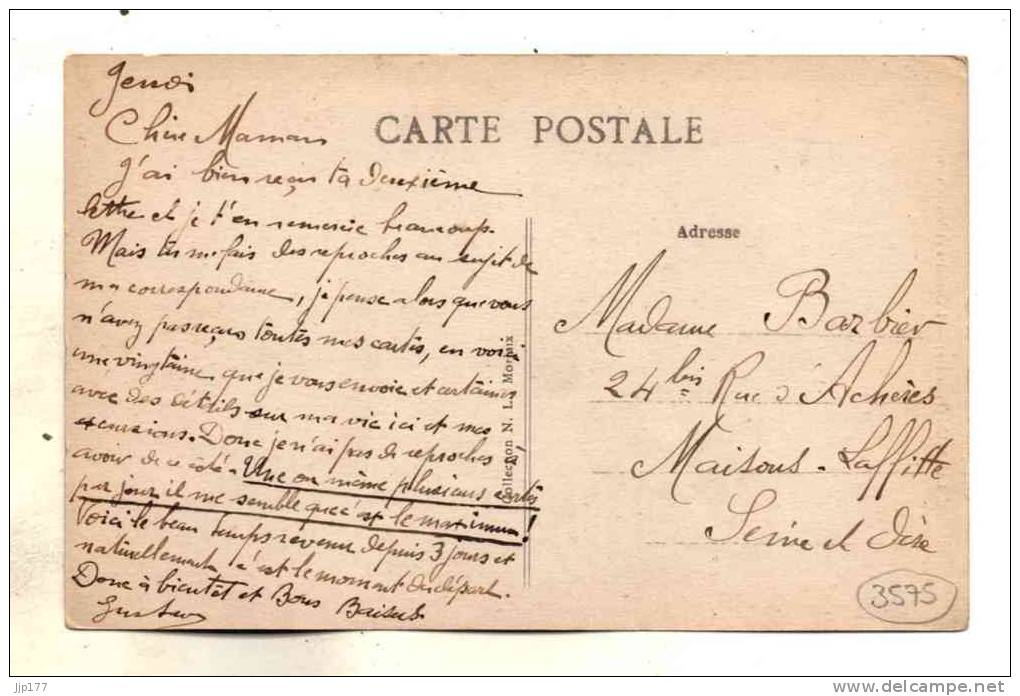 Jeudi
Chère Maman
CARTE POSTALE
J'ai bien reçu ta deuxième
lettre et je t'en remercie beaucoup.
Mais tu me fais des reproches au sujet de
ma correspondance, je pense alors que vous
n'avez pas reçus toutes mes cartes, en voici
une vingtaine que je vous envoie et certaines
avec des détails sur ma vie ici et mes
excursions. Donc je n'ai pas de reproches à
avoir de ce côté. Une ou même plusieurs cartes
par jour il me semble que c'est le maximum!
Voici le beau temps revenu depuis 3 jours et
naturellement c'est le moment du départ.
Donc à bientôt et Bons Baisers
Gustave
Collection N. L. Morlaix
Adresse
Madame Barbier
24 bis Rue d'Achères
Maisons-Laffitte
Seine et Oise
3575
jjp177
www.delcampe.net